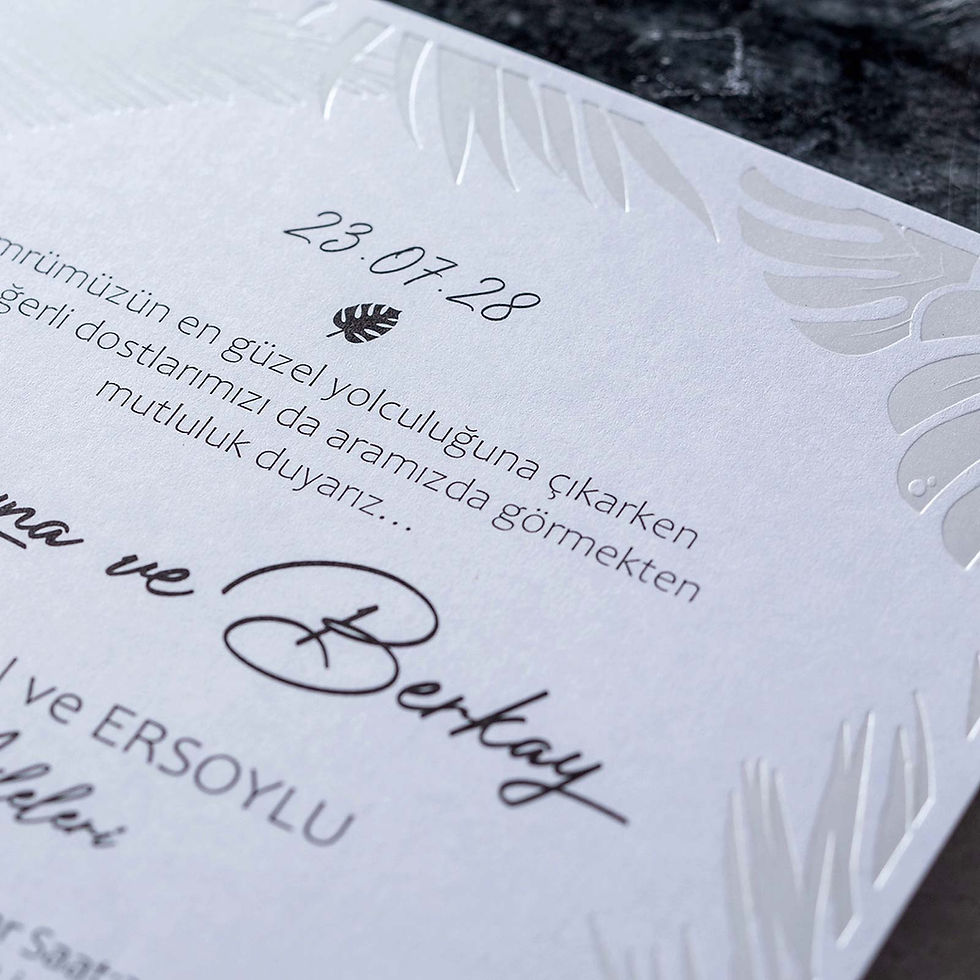 23.07.28
mrümüzün en güzel yolculuğuna çıkarken
ğerli dostlarımızı da aramızda görmekten
mutluluk duyarız...
una ve Berkay
ve ERSOYLU
ileleri